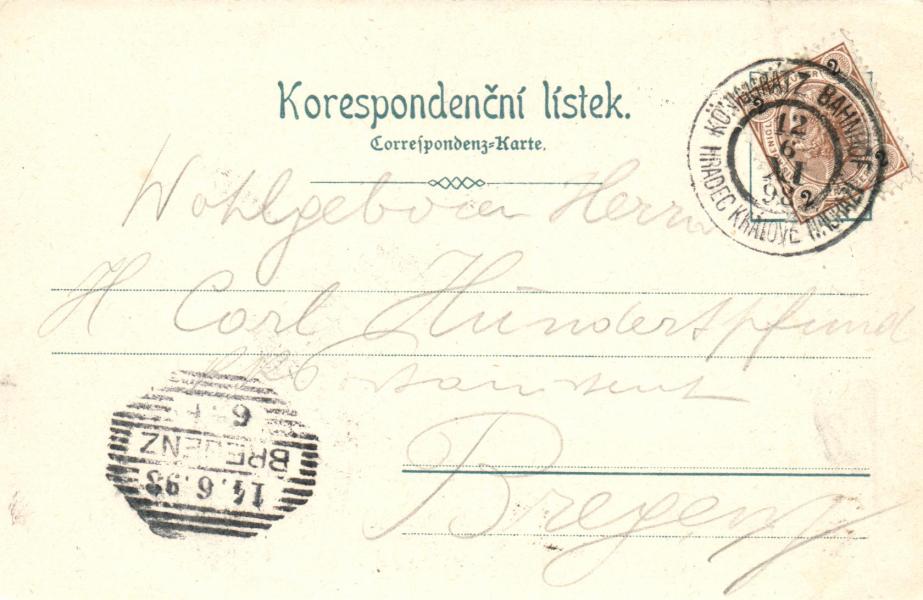 Korespondenční lístek.
Correspondenz-Karte.
KÖNIGGRÄTZ BAHNHOF
12
6
98
HRADEC KRÁLOVÉ
Wohlgeboren Herrn
H Carl Hundertpfund
Bregenz
BREGENZ
14.6.98
6